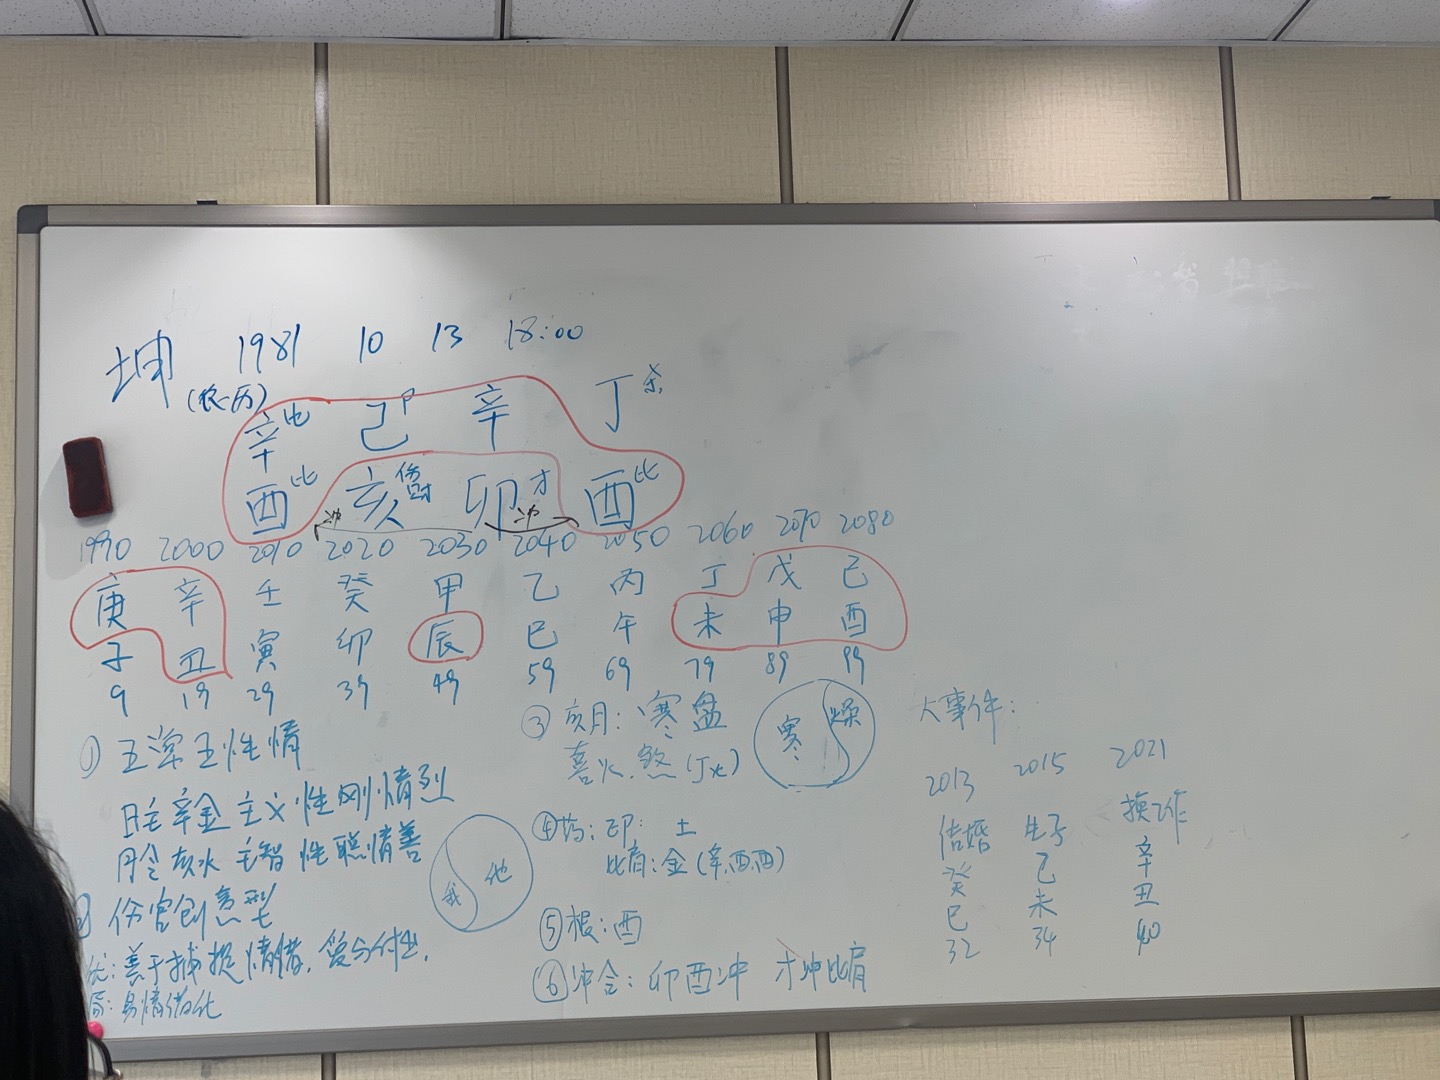 坤 1981 10 13 18:00
(农历)
辛比 己P 辛 丁杀
酉比 亥伤 卯才 酉比
冲 冲
1990 2000 2010 2020 2030 2040 2050 2060 2070 2080
庚 辛 壬 癸 甲 乙 丙 丁 戊 己
子 丑 寅 卯 辰 巳 午 未 申 酉
9 19 29 39 49 59 69 79 89 99
① 五常主性情
日主辛金主义性刚情烈
月令亥水主智性聪情善
伤官创意型
优:善于捕捉情绪,爱与付出,
易情绪化
我 他
③ 亥月:寒盘
喜火.煞(丁火)
寒 燥
④药:印: 土
比肩:金(辛.酉.酉)
⑤根:酉
⑥冲合:卯酉冲 才冲比肩
大事件:
2013 2015 2021
结婚 生子 换工作
癸 乙 辛
巳 未 丑
32 34 40